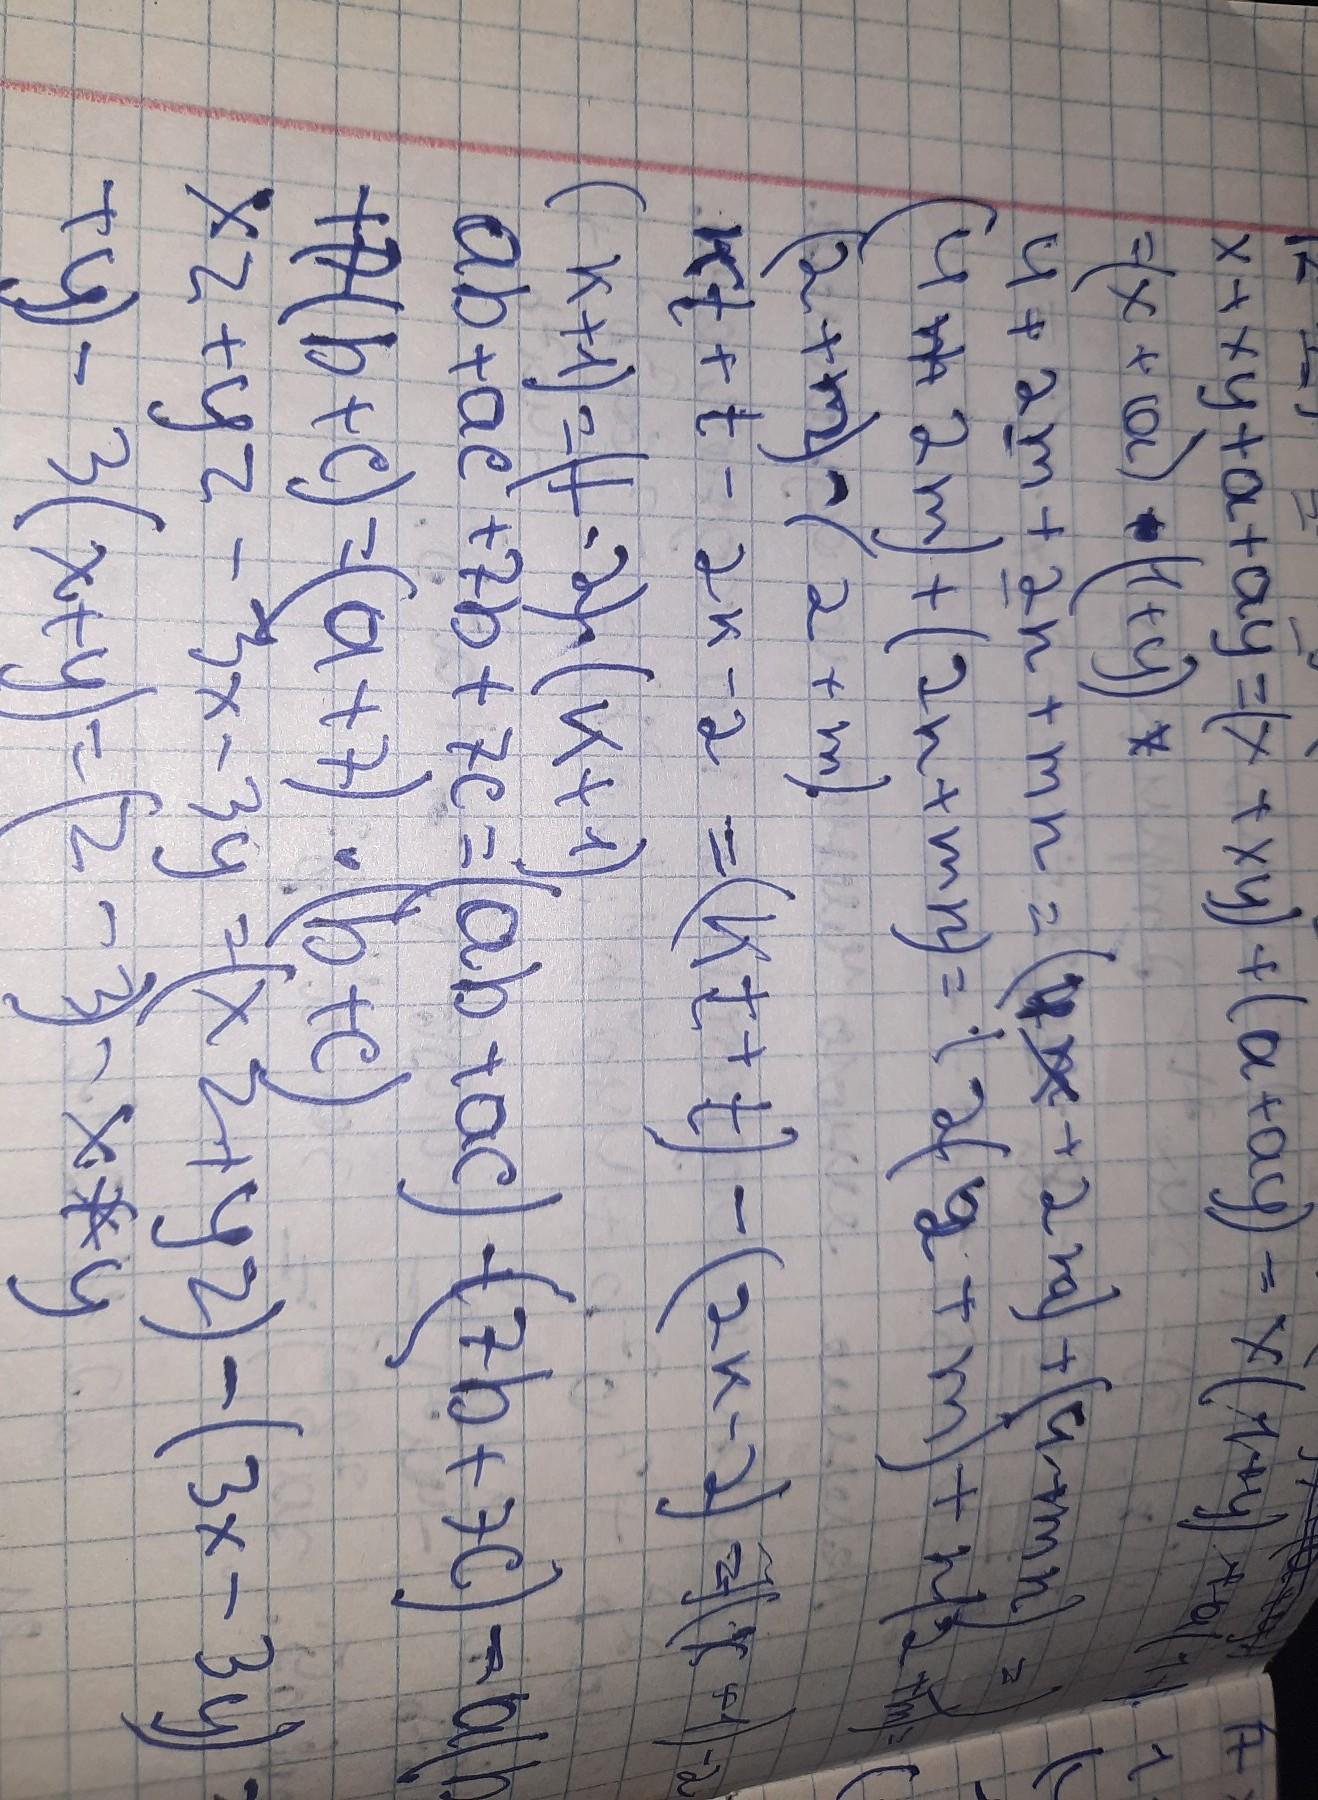 x+xy+a+ay=(x+xy)+(a+ay)=x(1+y)+a(1+
=(x+a)·(1+y)
4+2m+2n+mn=(+2n)+(4+mn)=
(4+2m)+(2n+mn)=2(2+m)+n(2+m)=
(2+m)·(2+m)
kt+t-2k-2=(kt+t)-(2k-2)=t(k+1)-2
(k+1)=(t-2)·(k+1)
ab+ac+7b+7c=(ab+ac)+(7b+7c)=a(b
+7(b+c)=(a+7)·(b+c)
xz+yz-3x-3y=(xz+yz)-(3x-3y)
+y)-3(x+y)=(z-3)·x+y